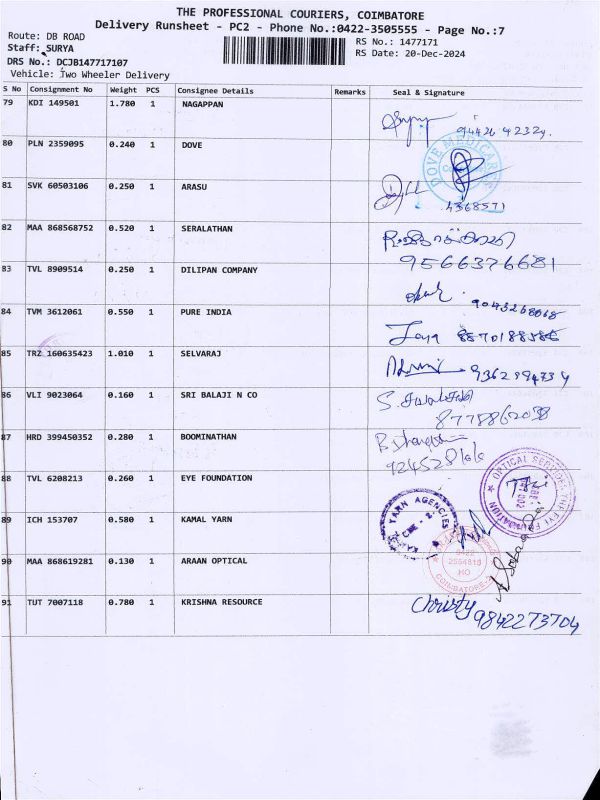 THE PROFESSIONAL COURIERS, COIMBATORE
Delivery Runsheet - PC2 - Phone No.:0422-3505555 - Page No.:7
Route: DB ROAD
Staff: SURYA
RS No.: 1477171
DRS No.: DCJB147717107
RS Date: 20-Dec-2024
Vehicle: Two Wheeler Delivery
S No Consignment No Weight PCS Consignee Details Remarks Seal & Signature
79 KDI 149501 1.780 1 NAGAPPAN
80 PLN 2359095 0.240 1 DOVE
DOVE MEDICARE
81 SVK 60503106 0.250 1 ARASU
4368571
82 MAA 868568752 0.520 1 SERALATHAN
9566376681
83 TVL 8909514 0.250 1 DILIPAN COMPANY
84 TVM 3612061 0.550 1 PURE INDIA
Jaya
85 TRZ 160635423 1.010 1 SELVARAJ
86 VLI 9023064 0.160 1 SRI BALAJI N CO
87 HRD 399450352 0.280 1 BOOMINATHAN
88 TVL 6208213 0.260 1 EYE FOUNDATION
OPTICAL SERVICES THE EYE FOUNDATION
89 ICH 153707 0.580 1 KAMAL YARN
YARN AGENCIES
90 MAA 868619281 0.130 1 ARAAN OPTICAL
0422
HO
COIMBATORE
91 TUT 7007118 0.780 1 KRISHNA RESOURCE
Christy
9842273704